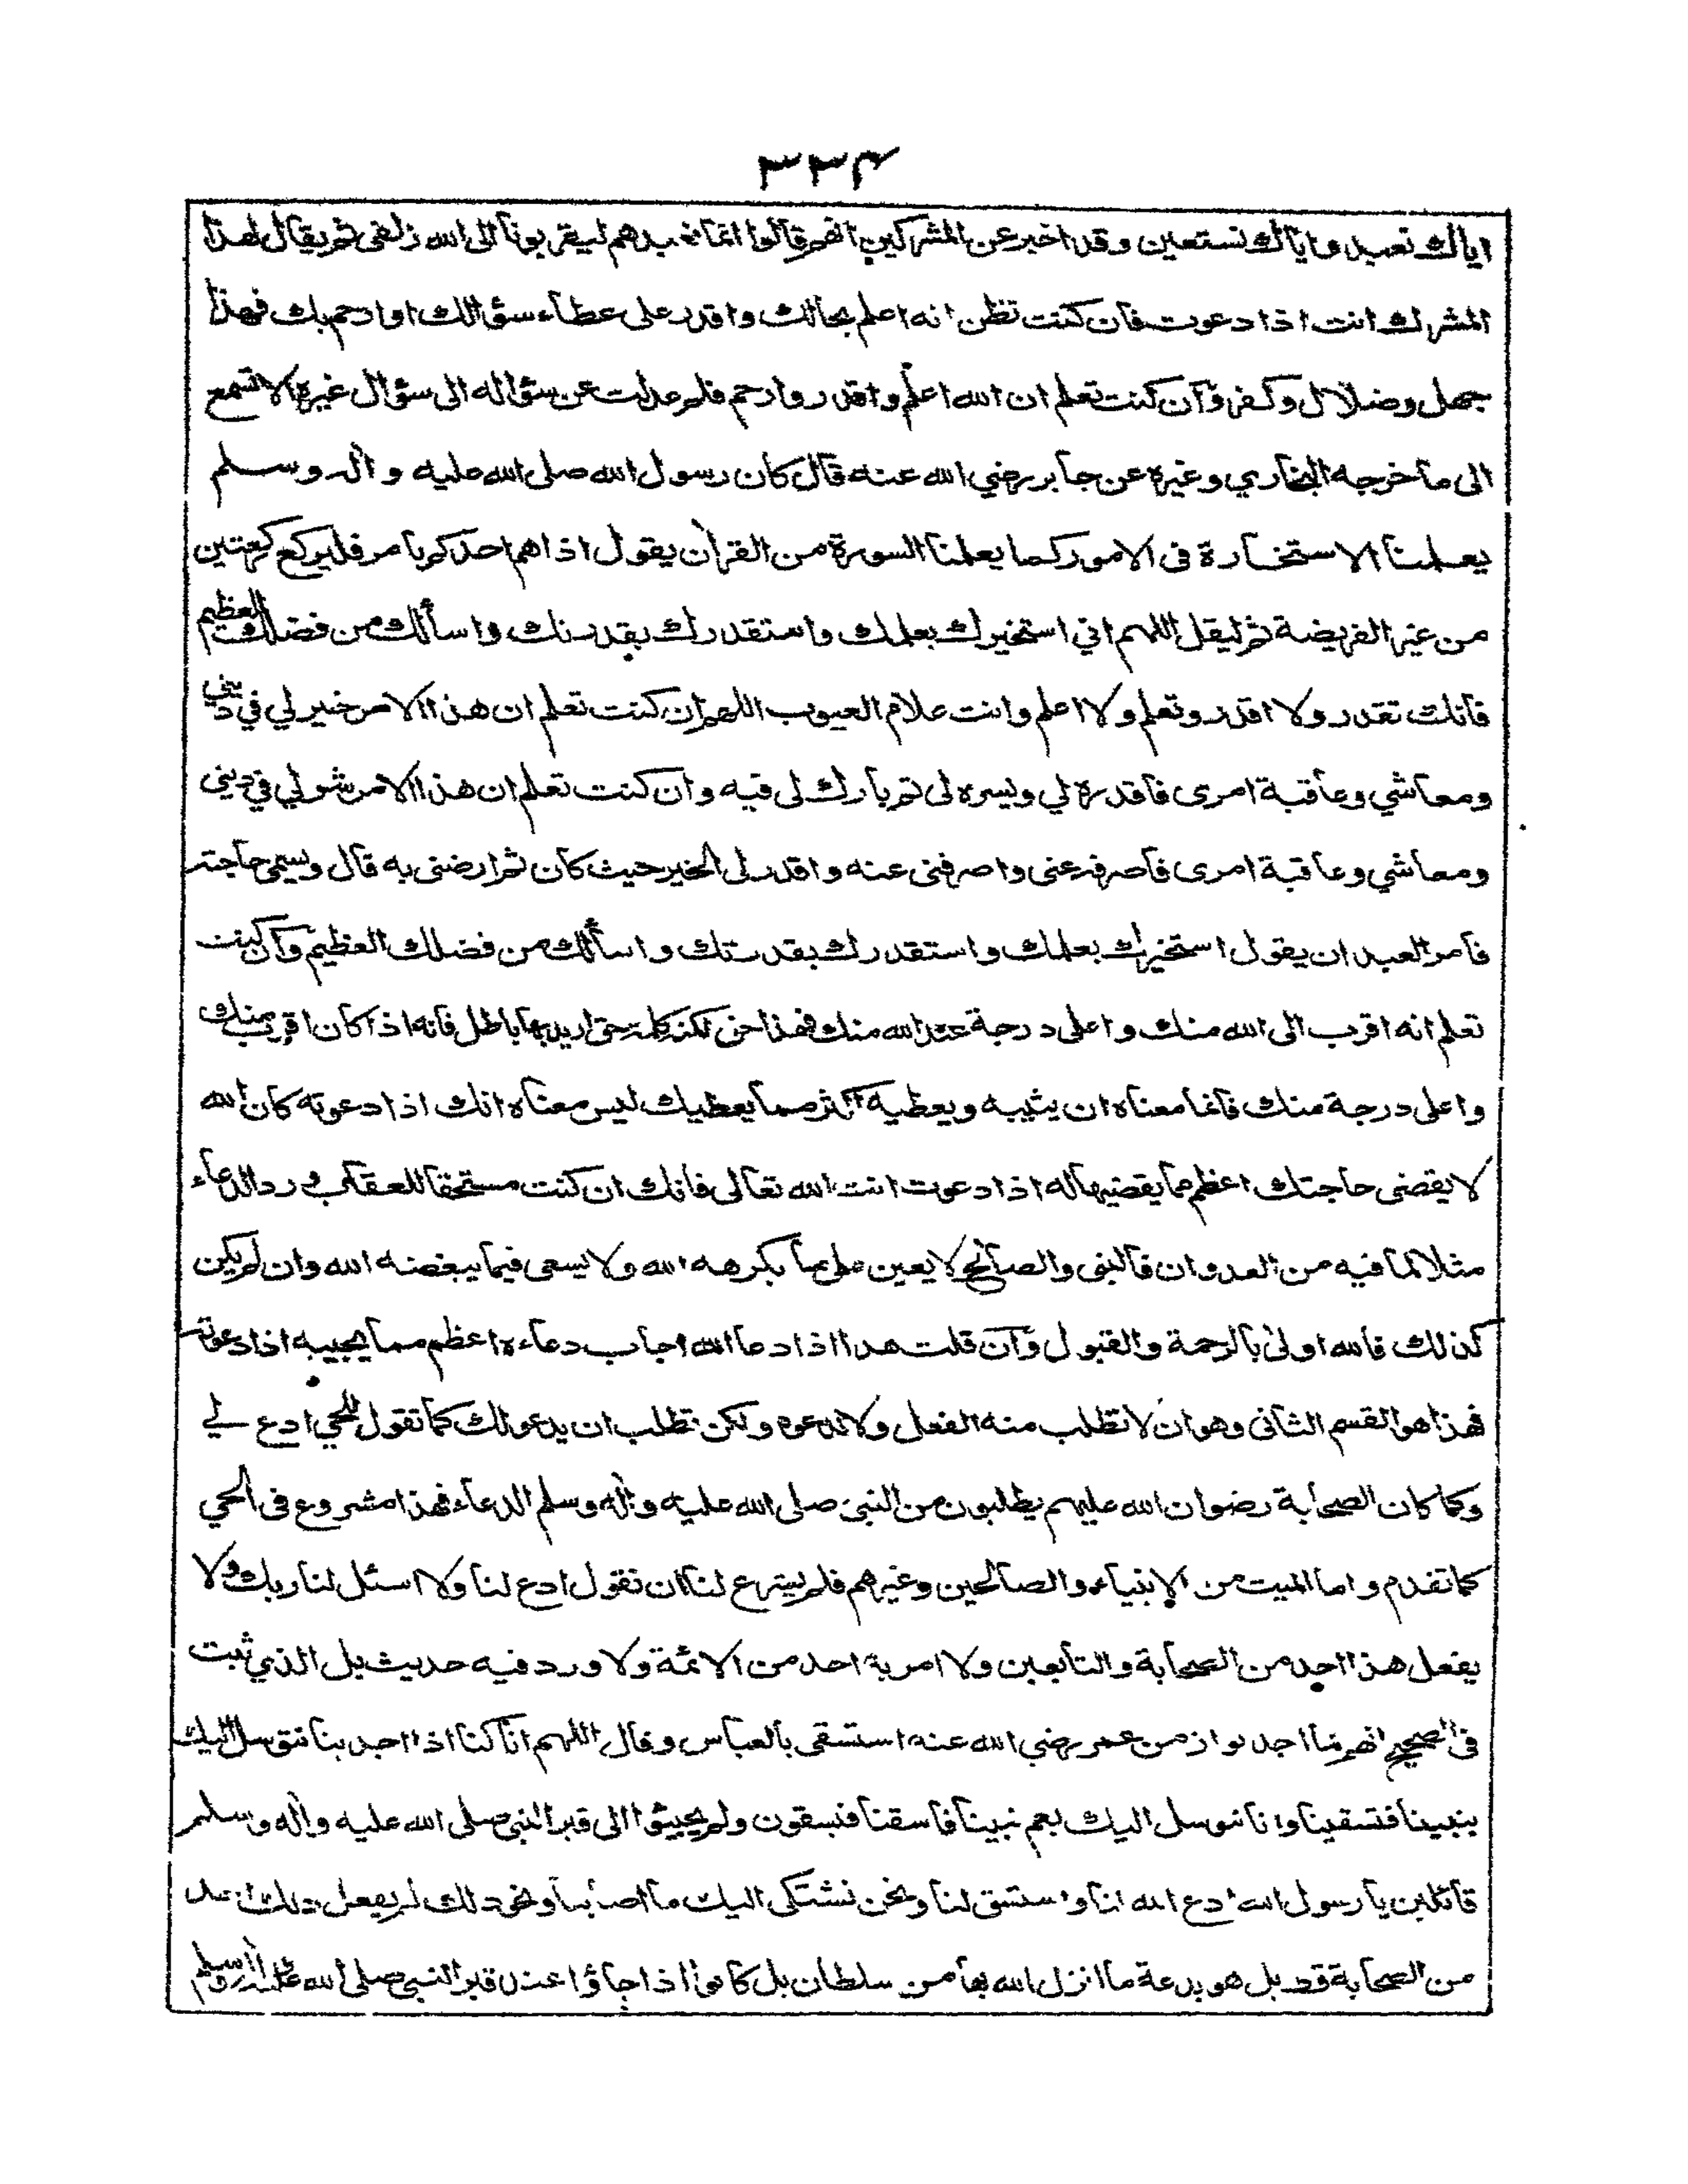 ٣٣٤
اياك نعبد واياك نستعين وقد اخبر عن المشركين انهم قالوا انما نعبدهم ليقربونا الى الله زلفى ثم يقال لهذا
المشرك انت اذا دعوت فان كنت تظن انه اعلم بحالك واقدر على عطاء سؤالك او ارحم بك فهذا
جهل وضلال وكفر وان كنت تعلم ان الله اعلم واقدر وارحم فلم عدلت عن سؤاله الى سؤال غيره الا تسمع
الى ما خرجه البخاري وغيره عن جابر رضي الله عنه قال كان رسول الله صلى الله عليه واله وسلم
يعلمنا الاستخارة في الامور كما يعلمنا السورة من القرآن يقول اذا هم احدكم بامر فليركع ركعتين
من غير الفريضة ثم ليقل اللهم اني استخيرك بعلمك واستقدرك بقدرتك واسألك من فضلك العظيم
فانك تقدر ولا اقدر وتعلم ولا اعلم وانت علام الغيوب اللهم ان كنت تعلم ان هذا الامر خير لي في ديني
ومعاشي وعاقبة امرى فاقدره لي ويسره لى ثم بارك لى فيه وان كنت تعلم ان هذا الامر شر لي في دينى
ومعاشي وعاقبة امرى فاصرفه عنى واصرفنى عنه واقدر لى الخير حيث كان ثم ارضنى به قال ويسمى حاجته
فامر العبد ان يقول استخيرك بعلمك واستقدرك بقدرتك واسألك من فضلك العظيم وان كنت
تعلم انه اقرب الى الله منك واعلى درجة عند الله منك فهذا حق لكنه كلمة حق اريد بها باطل فانه اذا كان اقرب منك
واعلى درجة منك فانما معناه ان يثيبه ويعطيه اكثر مما يعطيك ليس معناه انك اذا دعوته كان الله
لا يقضى حاجتك اعظم مما يقضيها له اذا دعوت انت الله تعالى فانك ان كنت مستحقا للعقاب ورد الدعاء
مثلا لما فيه من العدوان فالنبى والصالح لا يعين على ما يكرهه الله ولا يسعى فيما يبغضه الله وان لم يكن
كذلك فالله اولى بالرحمة والقبول وان قلت هذا اذا دعا الله اجاب دعاءه اعظم مما يجيبه اذا دعوته
فهذا هو القسم الثانى وهو ان لا تطلب منه الفعل ولا تدعوه ولكن تطلب ان يدعو لك كما تقول للحي ادع لي
وكما كان الصحابة رضوان الله عليهم يطلبون من النبي صلى الله عليه وآله وسلم الدعاء فهذا مشروع فى الحي
كما تقدم واما الميت من الانبياء والصالحين وغيرهم فلم يشرع لنا ان نقول ادع لنا ولا اسئل لنا ربك ولا
يفعل هذا احد من الصحابة والتابعين ولا امر به احد من الائمة ولا ورد فيه حديث بل الذي ثبت
فى الصحيح انهم لما اجدبوا زمن عمر رضي الله عنه استسقى بالعباس وقال اللهم انا كنا اذا اجدبنا نتوسل اليك
بنبينا فتسقينا وانا نتوسل اليك بعم نبينا فاسقنا فيسقون ولم يجيئوا الى قبر النبي صلى الله عليه واله وسلم
قائلين يا رسول الله ادع الله لنا واستسق لنا ونحن نشتكى اليك ما اصابنا ونحو ذلك لم يفعل ذلك احد
من الصحابة قط بل هو بدعة ما انزل الله بها من سلطان بل كانوا اذا جاؤا عند قبر النبي صلى الله عليه واله وسلم